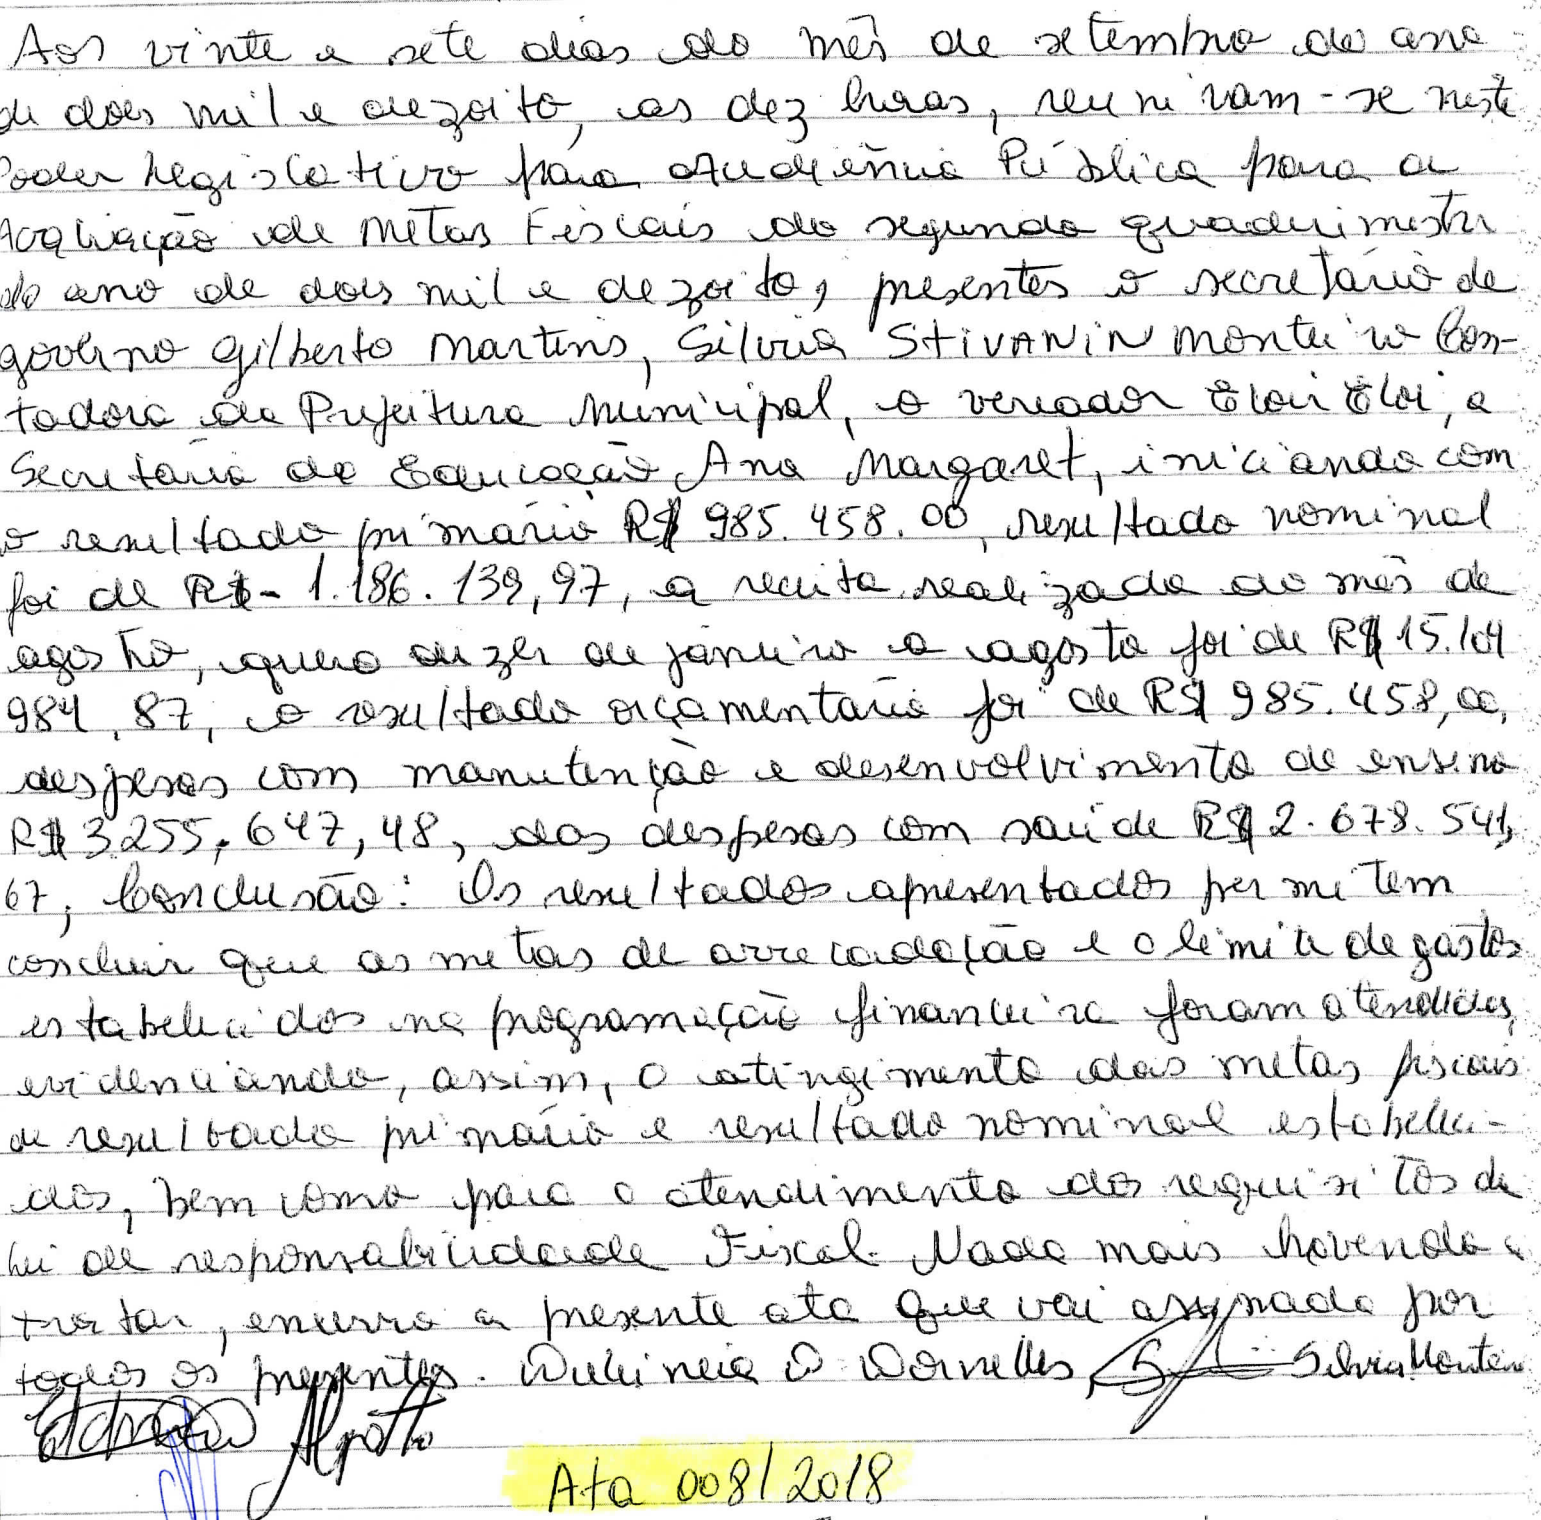 Aos vinte e sete dias do mês de setembro do ano
de dois mil e dezoito, as dez horas, reuniram-se neste
Poder Legislativo para Audiência Pública para a
Avaliação de Metas Fiscais do segundo quadrimestre
do ano de dois mil e dezoito, presentes o secretário de
governo Gilberto Martins, Silvia STIVANIN Monteiro Con-
tadora da Prefeitura Municipal, o vereador Eloir Eloi, a
Secretária de Educação Ana Margaret, iniciando com
o resultado primário R$ 985.458.00, resultado nominal
foi de R$- 1.186.139,97, a receita realizada do mês de
agosto, quero dizer de janeiro a agosto foi de R$ 15.109
984,87, o resultado orçamentário foi de R$ 985.458,00,
despesas com manutenção e desenvolvimento de ensino
R$ 3.255.647,48, das despesas com saúde R$ 2.678.541,
67, Conclusão: Os resultados apresentados permitem
concluir que as metas de arrecadação e o limite de gastos
estabelecidos na programação financeira foram atendidas,
evidenciando, assim, o atingimento das metas fiscais
de resultado primário e resultado nominal estabeleci-
dos, bem como para o atendimento dos requisitos da
Lei de responsabilidade Fiscal. Nada mais havendo a
tratar, encerro a presente ata que vai assinada por
todos os presentes. Dulcineia D. Dornelles, Silvia Monteiro
Ata 008/2018